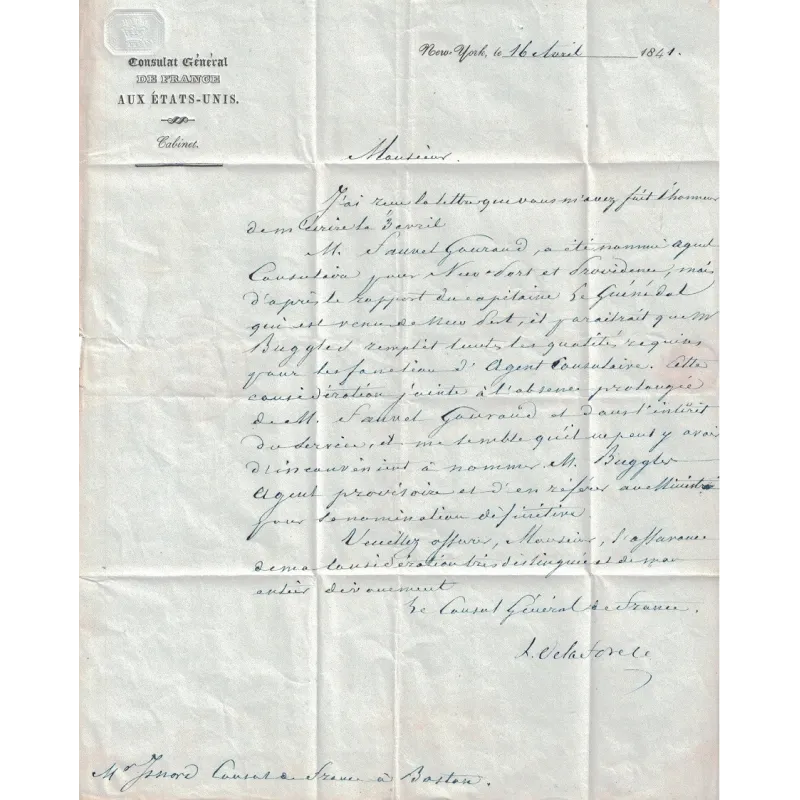 Consulat Général
DE FRANCE
AUX ÉTATS-UNIS.
Cabinet.
New-York, le 16 Avril 1841.
Monsieur.
J'ai reçu la lettre que vous m'avez fait l'honneur
de m'écrire le 3 avril
M. Fauvel Gouraud, a été nommé agent
Consulaire pour New-Port et Providence, mais
d'après le rapport du capitaine Le Guénédal
qui est venu de New Port, il paraitrait que Mr
Buggles remplit toutes les qualités requises
pour les fonction d'Agent Consulaire. Cette
considération jointe à l'absence prolongée
de M. Fauvel Gouraud et dans l'intérêt
du service, il me semble qu'il ne peut y avoir
d'inconvénient à nommer M. Buggles
Agent provisoire et d'en référer au Ministre
pour sa nomination définitive
Veuillez agréer, Monsieur, l'assurance
de ma Considération très distinguée et de mon
entier dévouement
Le Consul Général de France.
delaforest
Mr Isnard Consul de France à Boston.